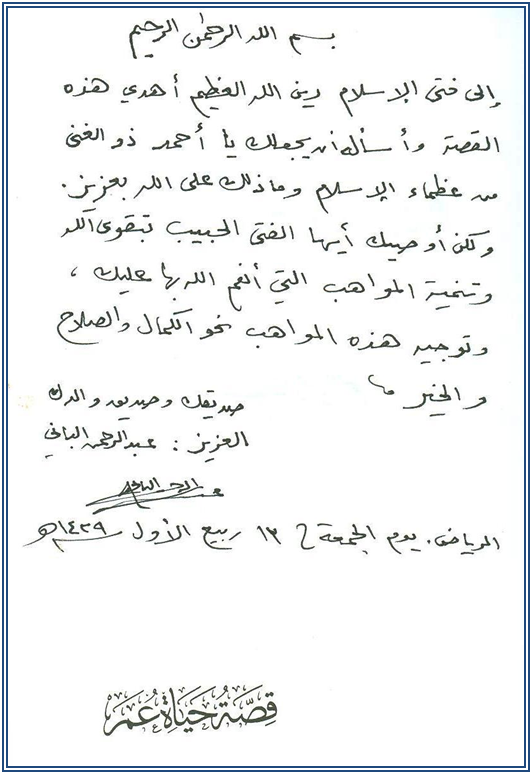 بسم الله الرحمن الرحيم
إلى فتى الإسلام دين الله العظيم أهدي هذه
القصة وأسأله أن يجعلك يا أحمد ذو الغنى
من عظماء الإسلام وما ذلك على الله بعزيز.
ولكن أوصيك أيها الفتى الحبيب بتقوى الله
وتنمية المواهب التي أنعم الله بها عليك،
وتوجيه هذه المواهب نحو الكمال والصلاح
والخير
صديقك وصديق والدك
العزيز: عبد الرحمن الباني
الرياض. يوم الجمعة ١٣ ربيع الأول ١٤٢٩هـ
قِصَّةُ حَيَاةِ عُمَرَ